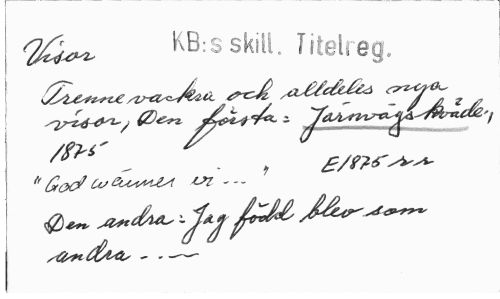 Visor KB:s skill. Titelreg.
Trenne vackra och alldeles nya
visor, Den första: Järnvägskväde,
1875
"God wänner vi..." E1875 rr
Den andra: Jag född blev som
andra ...—